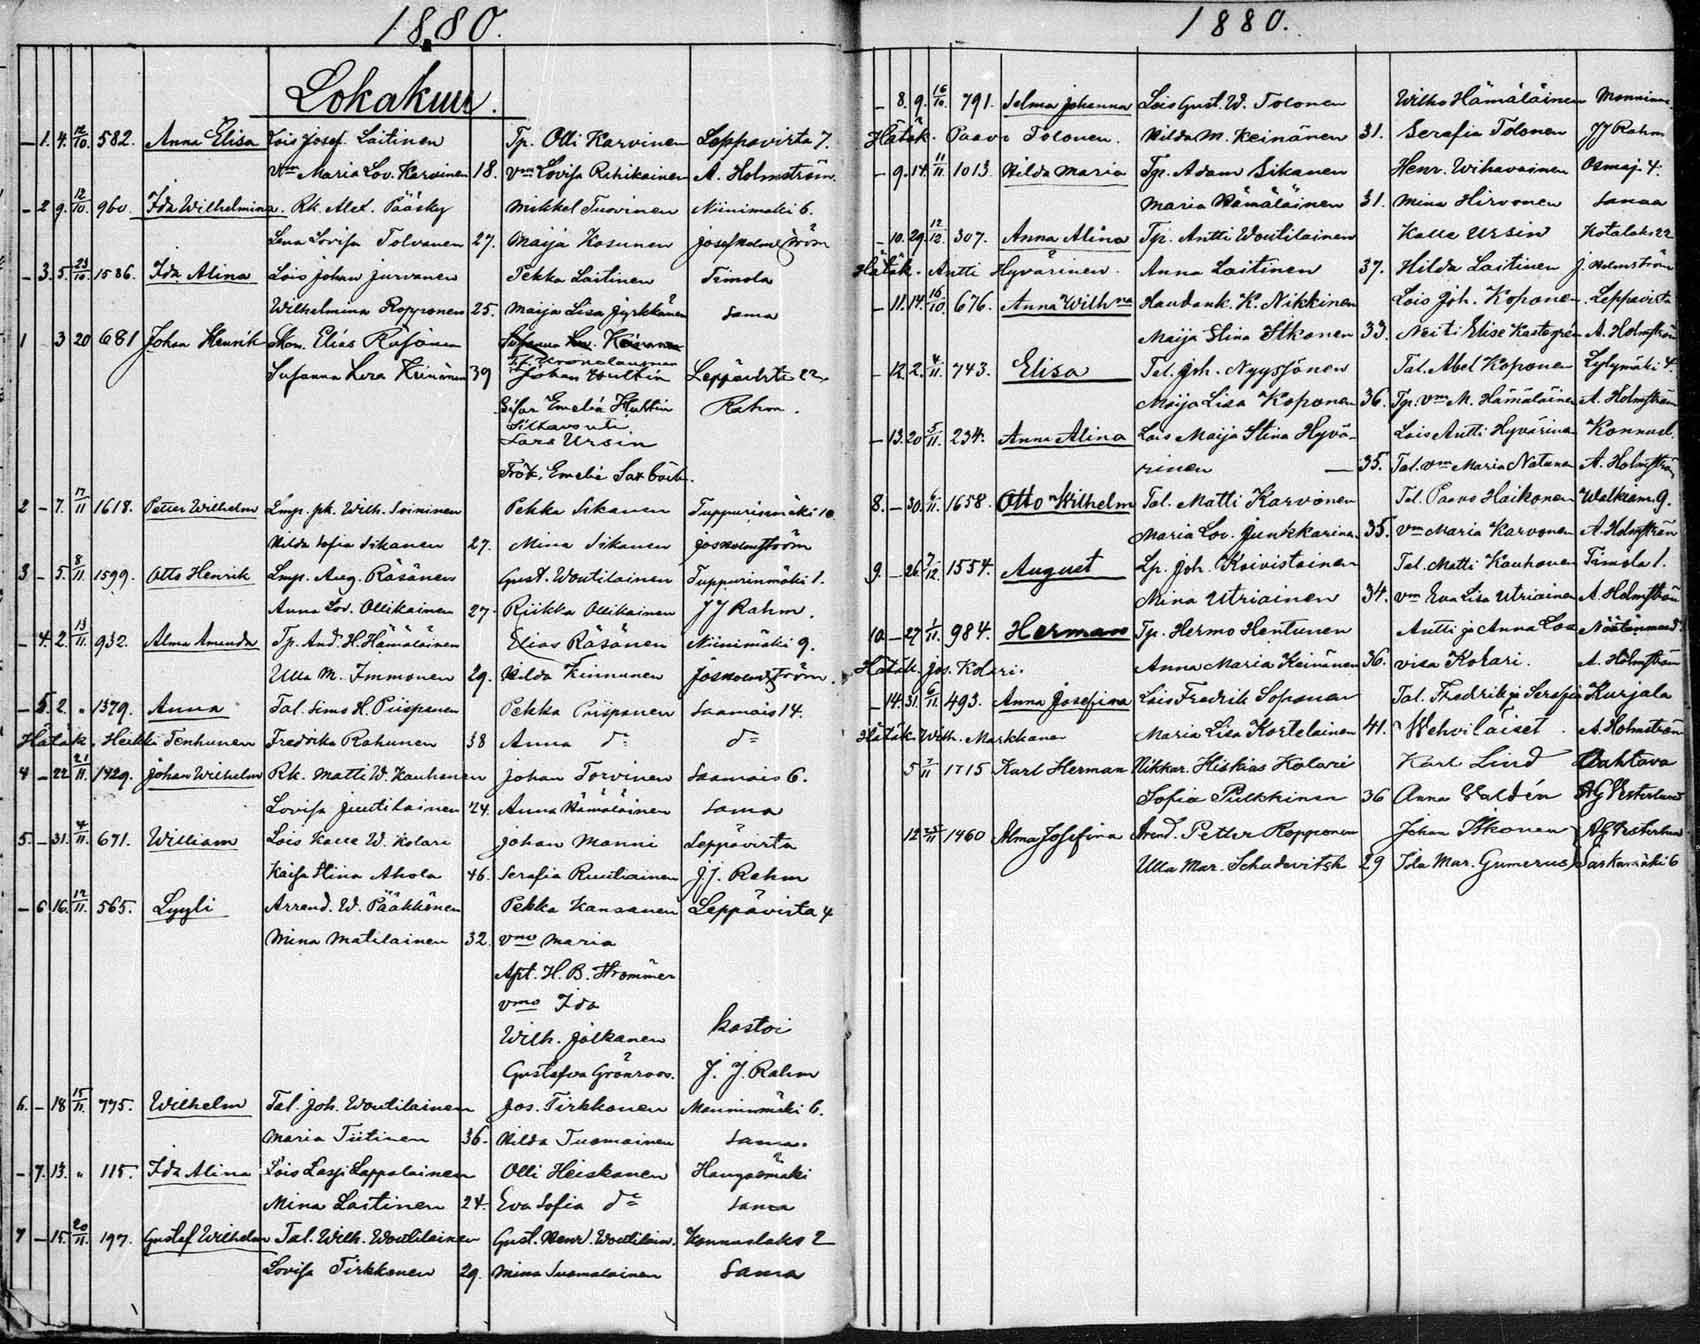 1880.
Lokakuu.
- 1. 4. 12/10. 582. Anna Elisa Lois Josef Laitinen Tp. Olli Karvinen Leppävirta 7.
Vmo Maria Lov. Karvinen 18. Vmo Lovisa Rehikainen A. Holmström
- 2 9. 12/10. 960. Ida Wilhelmina. Rk. Alex. Pääsky Mikkel Tuovinen Niinimäki 6.
Lena Lovisa Tolvanen 27. Maija Kosunen Josef Holmström
- 3. 5. 23/10. 1586. Ida Alina Lois Johan Jurvanen Pekka Laitinen Timola
Wilhelmina Ropponen 25. Maija Lisa Jyrkkänen sama
1 3 20 681 Johan Henrik Elias Räsänen Susanna
Susanna Lova Keinänen 39 Johan Hultin Leppävirta 22.
Emelia Hultin Rahm.
Siltavouti
Lars Ursin
Frök. Emelie
2 - 7. 17/11 1618. Petter Wilhelm Lmp. pk. Wilh. Soininen Pekka Sikanen Tuppurinmäki 10
Hilda Sofia Sikanen 27. Mina Sikanen Jos Holmström
3 - 5. 8/11 1599. Otto Henrik Lmp. Aug. Räsänen Gust. Woutilainen Tuppurinmäki 1.
Anna Lov. Ollikainen 27. Riikka Ollikainen JJ Rahm.
- 4. 2. 13/11. 932. Alma Amanda Tp. And. H. Hämäläinen Elias Räsänen Niinimäki 9.
Ulla M. Immonen 29. Hilda Kinnunen Jos Holmström.
- 5. 2. " 1379. Anna Tal. Sims H. Piispanen Pekka Piispanen Saamais 14.
Hätäk. Heikki Tenhunen Fredrika Rahunen 38 Anna do do
4 - 22 21/11. 1429. Johan Wilhelm Rk. Matti W. Kauhanen Johan Torvinen Saamais 6.
Lovisa Juutilainen 24. Anna Hämäläinen sama
5. - 31. 4/11. 671. William Lois Kalle W. Kolari Johan Manni Leppävirta
Kaisa Stina Ahola 46. Serafia Ruutiainen J J. Rahm
- 6 16. 12/11. 565. Lyyli Arrend. W. Pääkkönen Pekka Kansanen Leppävirta 4
Mina Matilainen 32. vmo Maria
Apt. H. B. Strömmer
vmo Ida
Wilh. Jalkanen kastoi
Gustafva Grönroos. J. J. Rahm
6. - 18 15/11. 775. Wilhelm Tal. Joh. Woutilainen Jos. Tirkkonen Manninmäki 6.
Maria Tiitinen 36. Hilda Tuomainen sama.
- 7. 13. " 115. Ida Alina Lois Lassi Lappalainen Olli Heiskanen Hangasmäki
Mina Laitinen 24. Eva Sofia do sama
7 - 15. 20/11. 197. Gustaf Wilhelm Tal. Wilh. Woutilainen Gust. Henr. Woutilain. Konnuslaks 2
Lovisa Tirkkonen 29. Mina Suomalainen sama
1880.
- 8. 9. 16/10. 791. Selma Johanna Lois Gust. W. Tolonen Wilho Hämäläinen
Hätäk. Paavo Tolonen. Hilda M. Keinänen 31. Serafia Tolonen JJ Rahm
- 9. 14. 11/11. 1013. Hilda Maria Tp. Adam Sikanen Henr. Wihavainen Osmaj. 4.
Maria Hämäläinen 31. Mina Hirvonen samaa
- 10. 29. 12/12. 307. Anna Alina Tp. Antti Woutilainen Kalle Ursin Kotalaks 22
Hätäk. Antti Hyvärinen. Anna Laitinen 37. Hilda Laitinen J. Holmström
- 11. 14. 16/10. 676. Anna Wilhna Haudank. K. Nikkinen Lois Joh. Koponen. Leppävirta
Maija Stina Itkonen 33. Neiti Elise Kastegren A. Holmström
- 12. 2. 4/11. 743. Elisa Tal. Joh. Nyyssönen Tal. Abel Koponen Lylymäki 4.
Maija Lisa Koponen 36. Tp. vmo M. Hämäläinen A. Holmström
- 13. 20 5/11. 234. Anna Alina Lois Maija Stina Hyvä- Lois Antti Hyvärinen
rinen 35. Tal. vmo Maria Natunen A. Holmström
8. - 30. 6/11. 1658. Otto Wilhelm Tal. Matti Karvonen Tal. Paavo Haikonen
Maria Lov. Junkkarinen 35. vmo Maria Karvonen A. Holmström
9. - 26. 7/12. 1554. August Lp. Joh. Koivistoinen Tal. Matti Kauhanen Timola 1.
Mina Utriainen 34. vmo Eva Lisa Utriainen A. Holmström
10 - 27 1/11. 984. Herman Tp. Hermo Hentunen Antti ja Anna Lo
Hätäk. Jos. Kolari. Anna Maria Keinänen 36. visa Kolari. A. Holmström
- 14. 31. 6/11. 493. Anna Josefina Lois Fredrik Soponar Tal. Fredrik ja Serafia Kurjala
Hätäk. Wilh. Markkanen Maria Lisa Kortelainen 41. Wehviläiset. A. Holmström
5 7/11 1715 Karl Herman Nikkar. Hiskias Kolari Karl Lind Oahtava
Sofia Pulkkinen 36 Anna Valdén AG Westerlund
12 1460 Alma Josefina Arend. Petter Ropponen Johan Itkonen AG Westerlund
Ulla Mar. Schadevitsh 29 Ida Mar. Gumerus Saskamäki 6